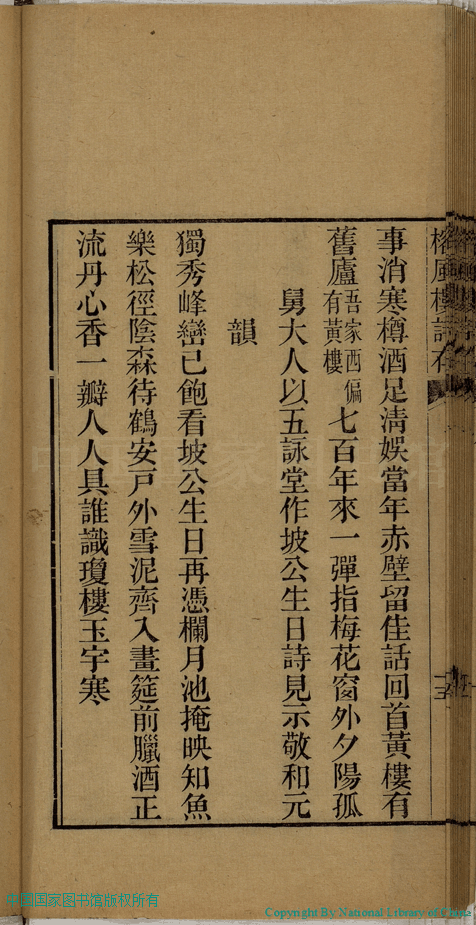 榕風樓詩存
事消寒樽酒足清娛當年赤壁留佳話回首黃樓有
舊廬吾家西偏有黃樓七百年來一彈指梅花窗外夕陽孤
舅大人以五詠堂作坡公生日詩見示敬和元
韻
獨秀峰巒已飽看坡公生日再憑欄月池掩映知魚
樂松徑陰森待鶴安戶外雪泥齊入畫筵前臘酒正
流丹心香一瓣人人具誰識瓊樓玉宇寒
中国国家图书馆版权所有
Copyright By National Library of China